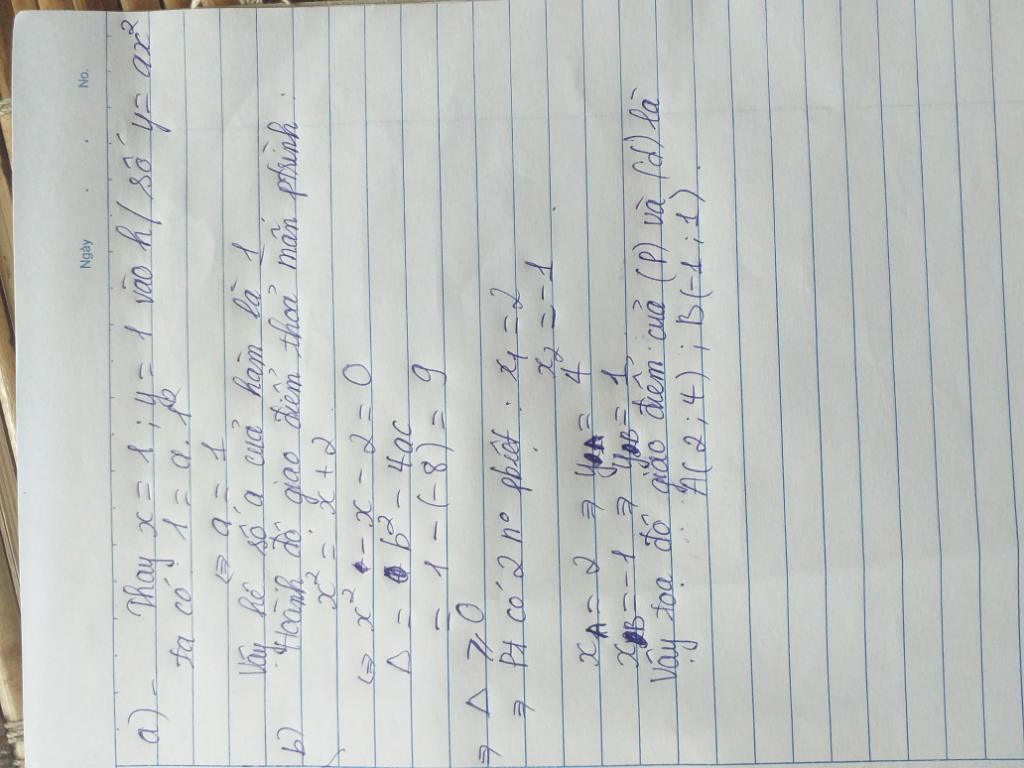 Ngày . . No.
a) - Thay x = 1 ; y = 1 vào h/số y = ax²
ta có 1 = a. 1²
⇔ a = 1
Vậy hệ số a của hàm là 1
b) Hoành độ giao điểm thoả mãn phình:
x² = x + 2
⇔ x² - x - 2 = 0
Δ = b² - 4ac
= 1 - (-8) = 9
⇒ Δ ≥ 0
⇒ Pt có 2 n° phiệt: x₁ = 2
x₂ = -1
x_A = 2 ⇒ y_A = 4
x_B = -1 ⇒ y_B = 1
Vậy tọa độ giao điểm của (P) và (d) là
A(2 ; 4) ; B(-1 ; 1).